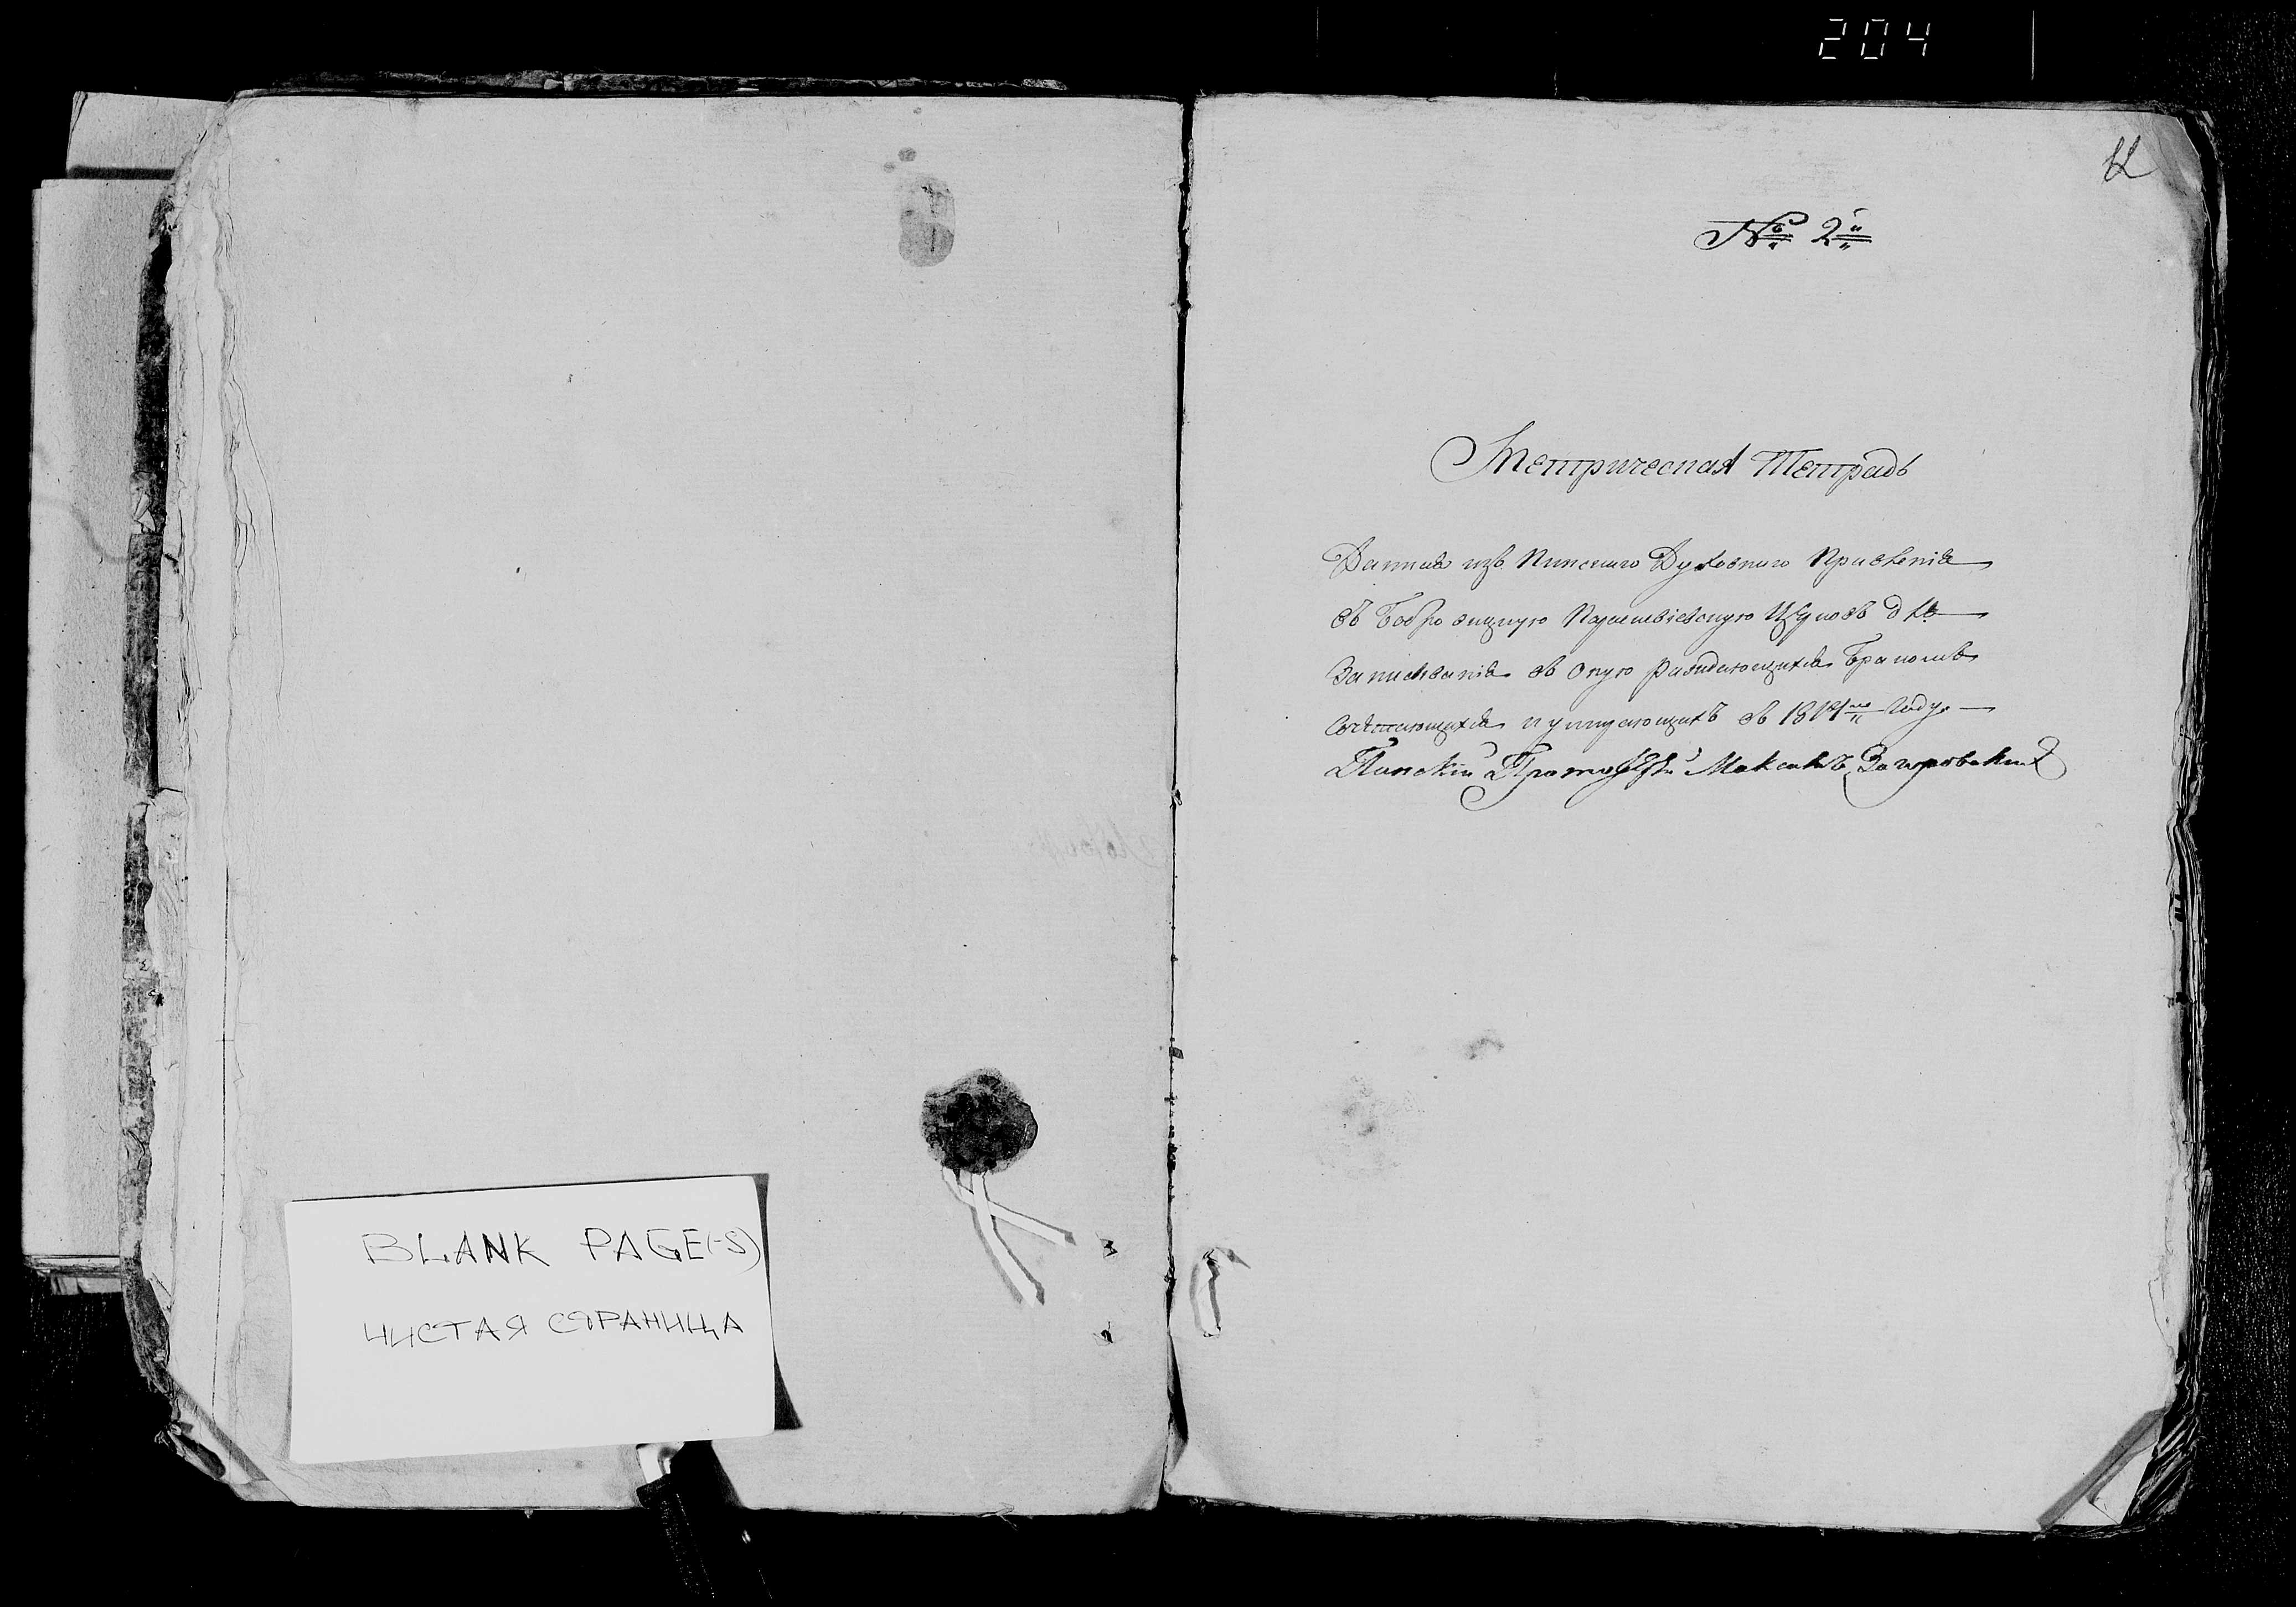 204
№ 2й
Метрическая Тетрадь
Данная изъ Пинскаго Духовнаго Правленія
въ Бобро Парасковіевскую Церковь для
Записыванія въ оную раждающихся Бракомъ
Сочетающихся и умирающихъ въ 1814мъ Году.
Пинскій Протоіерей Максимъ
BLANK PAGE(-S)
ЧИСТАЯ СТРАНИЦА